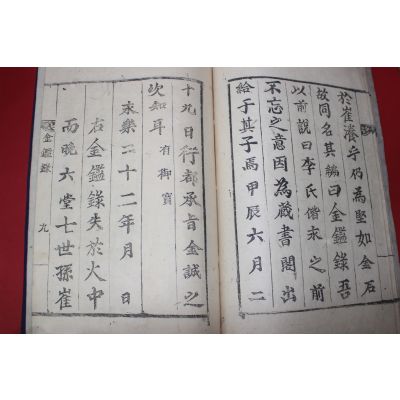 於崔瀁乎仍為堅如金石
故同名其編曰金鑑錄吾
以前說曰李氏偕求之前
不忘之意因為藏書閣出
給于其子焉甲辰六月二
十九日行都承旨金誠之
次知耳 有御寶
永樂二十二年月日
右金鑑錄失於火中
而晩六堂七世孫崔
金鑑錄 九